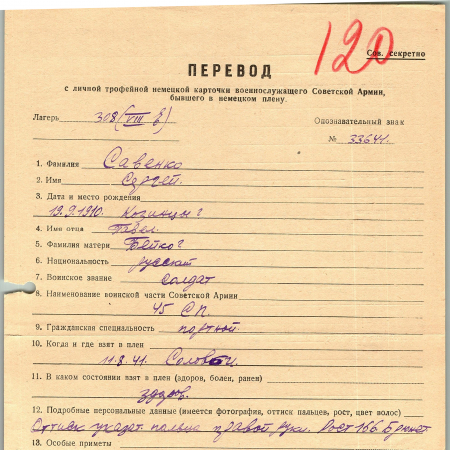 120
Сов. секретно
ПЕРЕВОД
с личной трофейной немецкой карточки военнослужащего Советской Армии,
бывшего в немецком плену.
Лагерь 308 (VIII E) Опознавательный знак
№ 33641.
1. Фамилия Савенко
2. Имя Сергей
3. Дата и место рождения
19.9.1910. Козинцы?
4. Имя отца Павел
5. Фамилия матери Бейко?
6. Национальность русский
7. Воинское звание солдат
8. Наименование воинской части Советской Армии
45 СП.
9. Гражданская специальность портной
10. Когда и где взят в плен
11.8.41.
11. В каком состоянии взят в плен (здоров, болен, ранен)
здоров.
12. Подробные персональные данные (имеется фотография, оттиск пальцев, рост, цвет волос)
Оттиск указат. пальца правой руки. Рост 166. Брюнет
13. Особые приметы